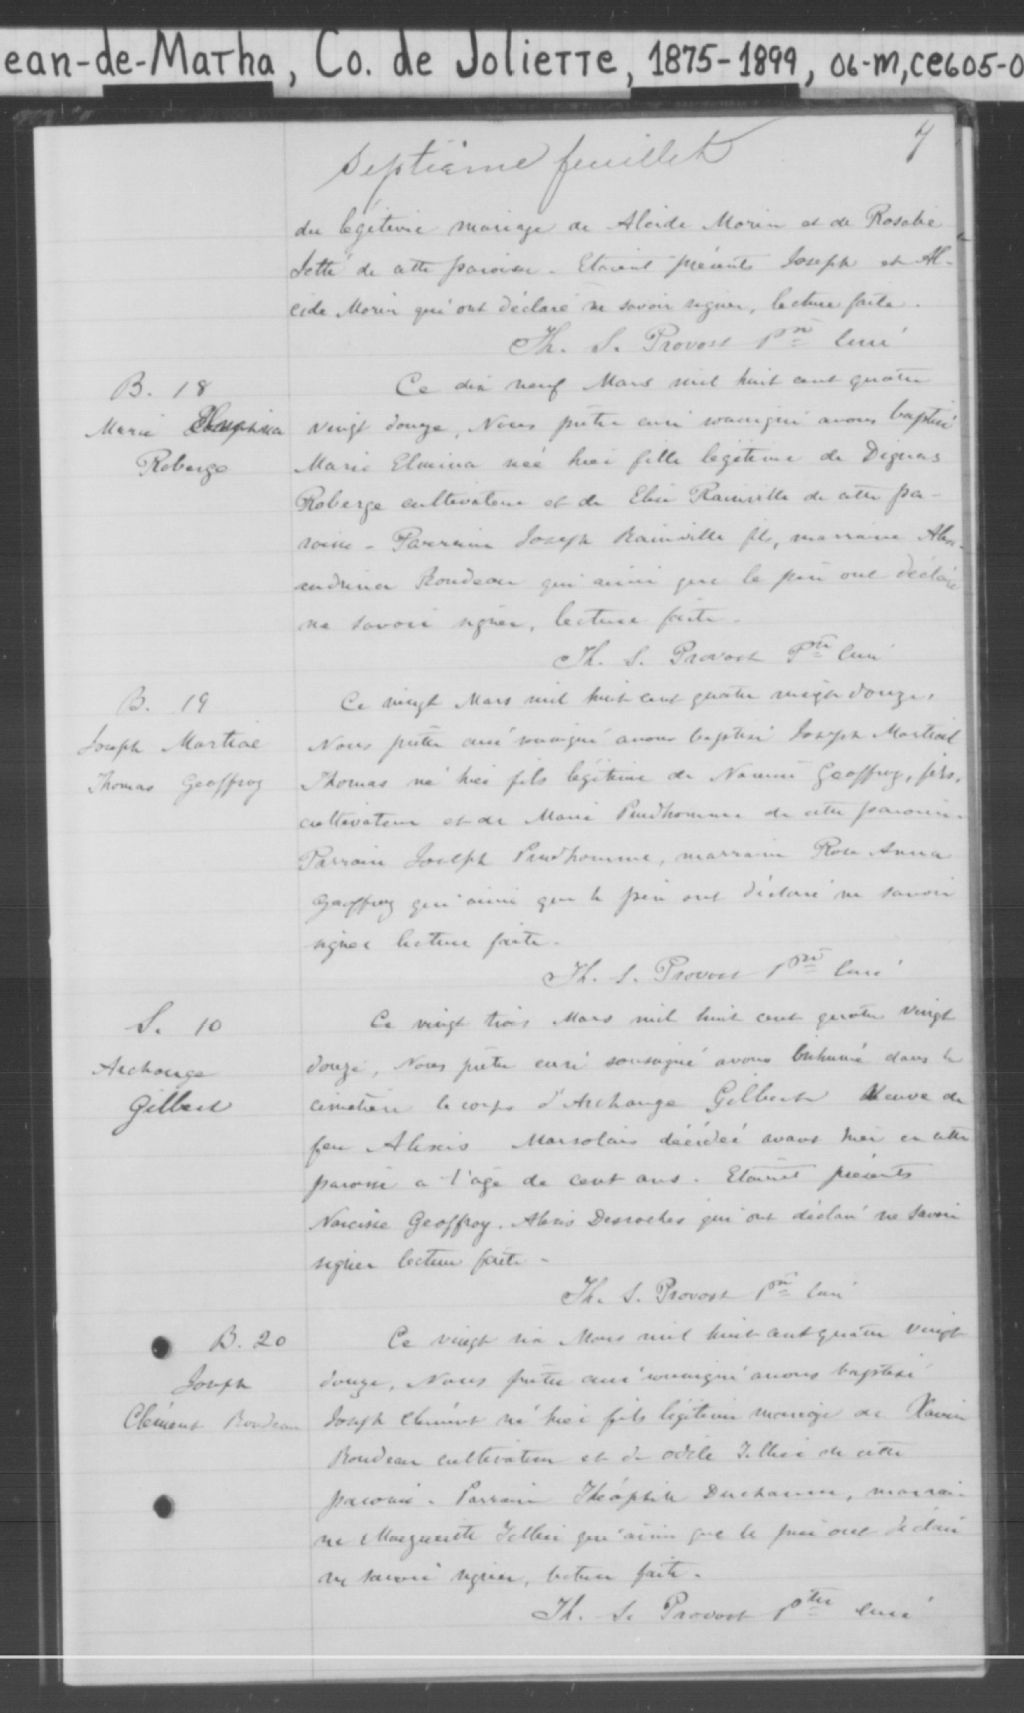 ean-de-Matha, Co. de Joliette, 1875-1899, 06-M, CE605-0
7
Septième feuillet
du légitime mariage de Alcide Morin et de Rosalie
Jetté de cette paroisse. Etaient présents Joseph et Al-
cide Morin qui ont déclaré ne savoir signer, lecture faite.
Th. S. Provost Ptre Curé
B. 18
Marie
Roberge
Ce dix neuf Mars mil huit cent quatre
vingt douze, Nous prêtre curé soussigné avons baptisé
Marie Elmina née hier fille légitime de
Roberge cultivateur et de Elise Rainville de cette pa-
roisse. Parrain Joseph Rainville fils, marraine Alex-
andrina Rondeau qui ainsi que le père ont déclaré
ne savoir signer, lecture faite.
Th. S. Provost Ptre Curé
B. 19
Joseph Martial
Thomas Geoffroy
Ce vingt Mars mil huit cent quatre vingt douze,
Nous prêtre curé soussigné avons baptisé Joseph Martial
Thomas né hier fils légitime de Narcisse Geoffroy, fils,
cultivateur et de Marie Prudhomme de cette paroisse.
Parrain Joseph Prudhomme, marraine Rose Anna
Geoffroy qui ainsi que le père ont déclaré ne savoir
signer lecture faite.
Th. S. Provost Ptre Curé
S. 10
Archange
Gilbert
Ce vingt trois Mars mil huit cent quatre vingt
douze, Nous prêtre curé soussigné avons inhumé dans le
cimetière le corps d'Archange Gilbert Veuve de
feu Alexis Marsolais décédée avant hier en cette
paroisse a l'âge de cent ans. Etaient présents
Narcisse Geoffroy, Alexis Desroches qui ont déclaré ne savoir
signer lecture faite.
Th. S. Provost Ptre Curé
B. 20
Joseph
Clément Rondeau
Ce vingt six Mars mil huit cent quatre vingt
douze, Nous prêtre curé soussigné avons baptisé
Joseph Clément né hier fils légitime mariage de Xavier
Rondeau cultivateur et de Odile Tellier de cette
paroisse. Parrain Théophile Ducharme, marrai-
ne Marguerite Tellier qui ainsi que le père ont déclaré
ne savoir signer, lecture faite.
Th. S. Provost Ptre Curé